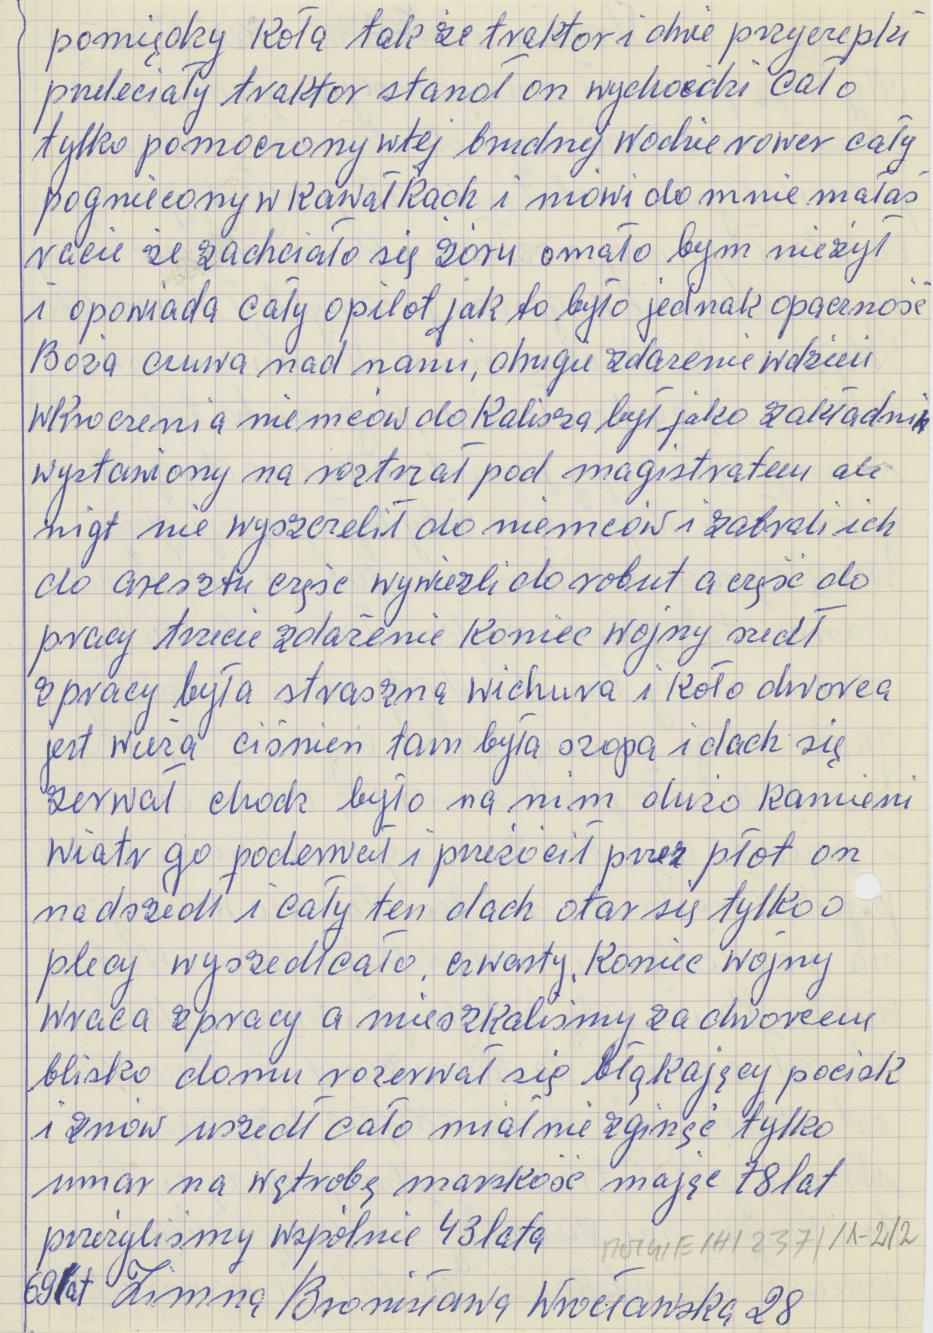 pomiędzy Koła tak że traktor i dwie przyczepki
przeleciały traktor stanoł on wychoidzi Cało
tylko pomoczony wtej brudnej Wodzie rower cały
pogniecony w Kawałkach i mówi do mnie małaś
racie że zachciało się żóru omało bym nieżył
i opowiada Cały opilot jak to było jednak opaczność
Boża czuwa nad nami, drugie zdażenie wdzień
wKroczenia niemców do Kalisza był jako zakładnik
wystawiony na roztrzał pod magistratem ale
nigt nie wyszczelił do niemców i zabrali ich
do aresztu część wywieźli do robut a część do
pracy trzecie zdażenie Koniec Wojny szedł
z pracy była straszną Wichura i Koło dworca
jest wieża ciśnień tam była szopa i dach się
zerwał chodz było na nim dużo Kamieni
Wiatr go poderwał i przeżócił przez płot on
nadszedł i Cały ten dach otar się tylko o
plecy wyszedł cało, czwarty, Koniec Wojny
Wraca z pracy a mieszkaliśmy za dworcem
blisko domu rozerwał się błąkający pocisk
i znów uszedł Cało miał nie zginąć tylko
umar na wątrobę marskość mając 78 lat
przeżyliśmy wspólnie 43 lata
237/ /1-2/2
69 lat Zimną Bronisława Wrocławską 28